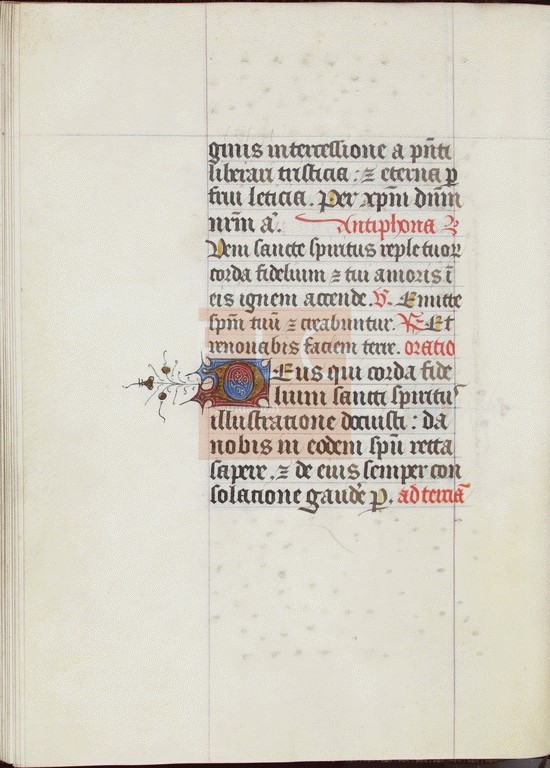 ginis intercessione a pn̄ti
liberari tristicia : ⁊ eterna p
frui leticia. Per xp̄m dn̄m
nr̄m a. Antiphona
Veni sancte spiritus reple tuoꝝ
corda fidelium ⁊ tui amoris ī
eis ignem accende. V. Emitte
spm̄ tuū ⁊ creabuntur. R. Et
renouabis faciem terre. oratio
Deus qui corda fide
lium sancti spiritus
illustratione docuisti : da
nobis in eodem spū recta
sapere . ⁊ de eius semper con
solatione gaude p. ad tertiā